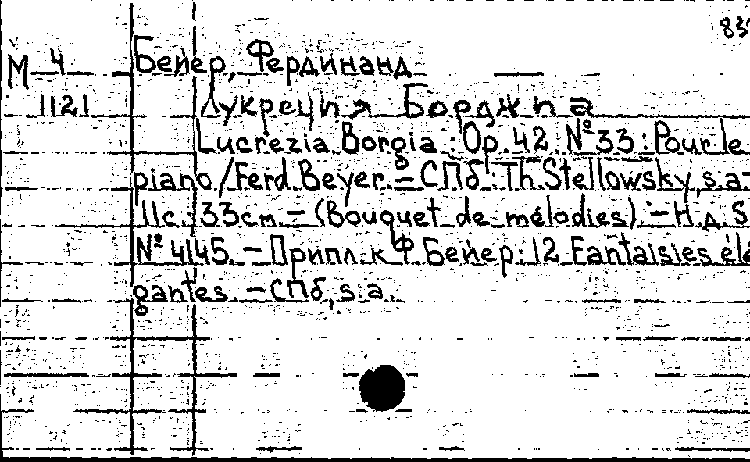 839
М 4 Бейер, Фердинанд
1121 Лукреция Борджиа
Lucrezia Borgia : Op. 42 № 33 : Pour le
piano / Ferd. Beyer. – СПб : Th. Stellowsky, s.a. –
11с. ; 33см. – (Bouquet de mélodies). – Н.д. S
№ 4145. – Припл. к Ф. Бейер: 12 Fantaisies élé-
gantes. – СПб, s.a.